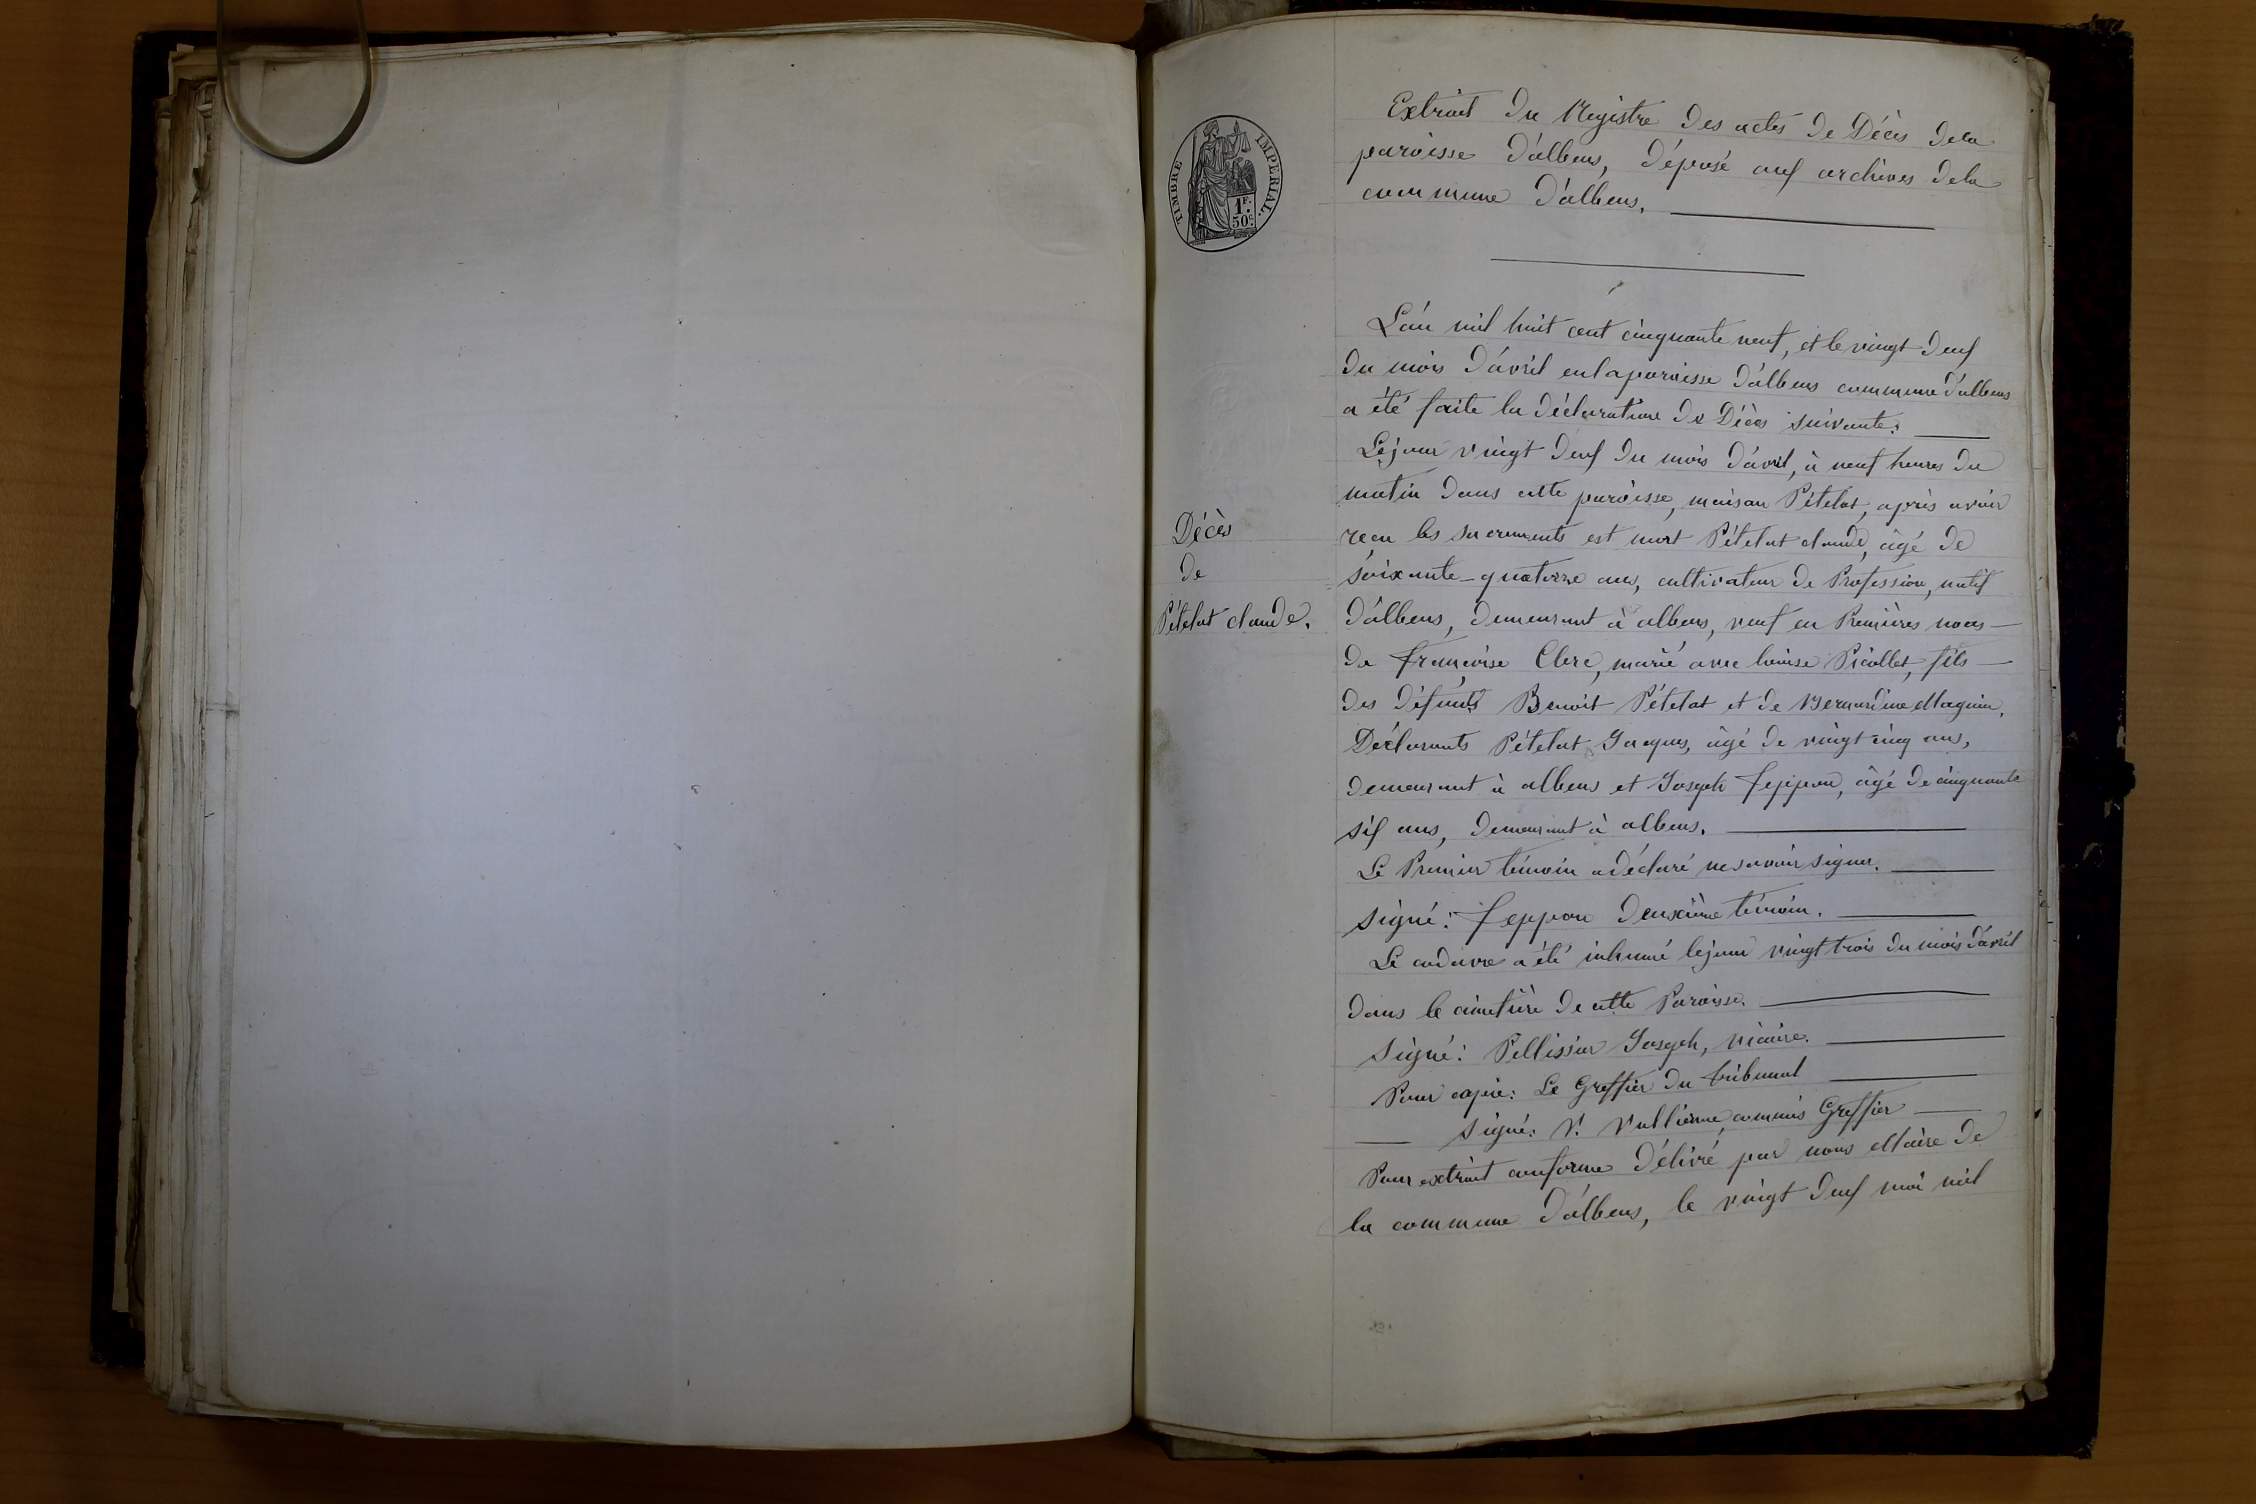 TIMBRE IMPERIAL.
1F.
50c.
Extrait du Registre des actes de Décès dela
paroisse d'albens, déposé aux archives dela
commune d'albens.
L'an mil huit cent cinquante neuf, et le vingt deux
du mois d'avril en la paroisse d'albens commune d'albens
a été faite la déclaration de Décès suivante:
Le jour vingt deux du mois d'avril, à neuf heures du
matin dans cette paroisse, maison Pételat, après avoir
reçu les sacrements est mort Pételat claude, âgé de
soixante-quatorze ans, cultivateur de Profession, natif
d'albens, demeurant à albens, veuf en Premières noces
de françoise Clerc, marié avec louise Picollet, fils
des défunts Benoit Pételat et de Bernardine Magnin.
Déclarants Pételat Jacques, âgé de vingt cinq ans,
demeurant à albens et Joseph feppon, âgé de cinquante
six ans, demeurant à albens.
Le Premier témoin a déclaré ne savoir signer.
signé: feppon deuxième témoin.
Le cadavre a été inhumé le jour vingt trois du mois d'avril
dans le cimetière de cette Paroisse.
Signé: Pellissier Joseph, vicaire.
Pour copie: Le Greffier du tribunal
signé: V. Vullierme, commis Greffier
Pour extrait conforme délivré par nous Maire de
la commune d'albens, le vingt deux mai mil
Décès
de
Pételat claude.